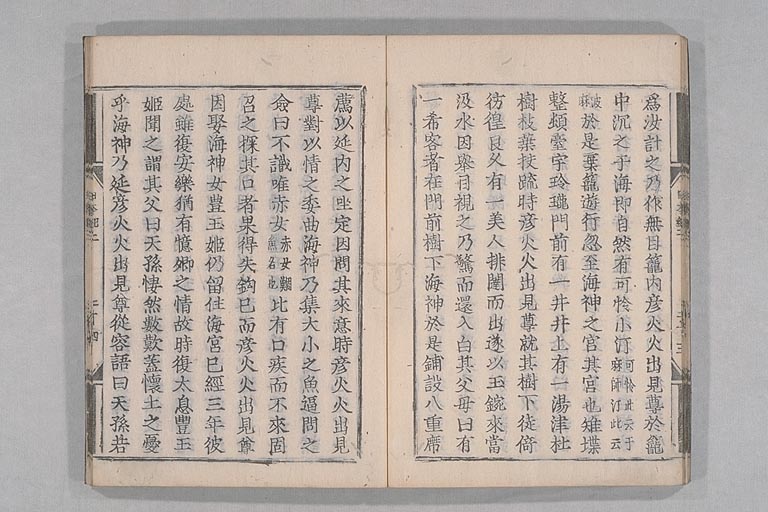 爲汝計之乃作無目籠内彦火火出見尊於籠
中沉之于海即自然有可怜小汀可怜此云于麻師汀此云
波麻於是棄籠遊行忽至海神之宮其宮也雉堞
整頓臺宇玲瓏門前有一井井上有一湯津杜
樹枝葉扶疏時彦火火出見尊就其樹下徙倚
彷徨良久有一美人排闥而出遂以玉鋺來當
汲水因舉目視之乃驚而還入白其父母曰有
一希客者在門前樹下海神於是鋪設八重席
薦以延内之坐定因問其來意時彦火火出見
尊對以情之委曲海神乃集大小之魚逼問之
僉曰不識唯赤女赤女鯛魚名也比有口疾而不來固
召之探其口者果得失鈎已而彦火火出見尊
因娶海神女豊玉姬仍留住海宮已經三年彼
處雖復安樂猶有憶鄉之情故時復太息豊玉
姬聞之謂其父曰天孫悽然數歎蓋懷土之憂
乎海神乃延彦火火出見尊從容語曰天孫若